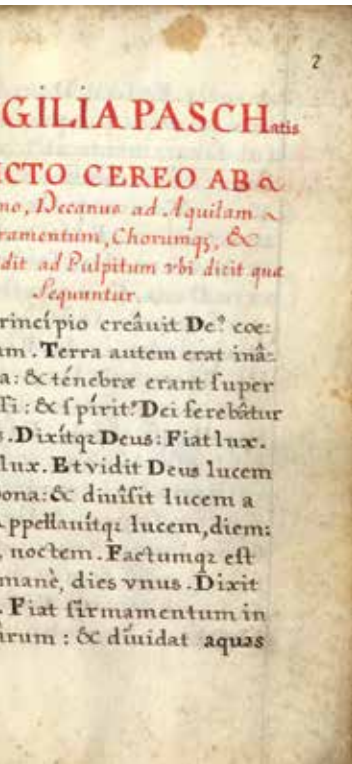 2
GILIA PASCHatis
CTO CEREO AB
no, Decanus ad Aquilam
ramentum, Chorumqꝫ, &
dit ad Pulpitum vbi dicit quæ
Sequuntur.
rincípio creâuit De⁹ cœ:
um. Terra autem erat inâ:
a: & ténebræ erant super
si: & spírit⁹ Dei ferebâtur
s. Dixítqꝫ Deus: Fiat lux.
lux. Et vidit Deus lucem
bona: & diuîsit lucem a
Appellauítqꝫ lucem, diem:
, noctem. Factumqꝫ est
manè, dies vnus. Dixit
. Fiat firmamentum in
árum: & díuidat aquas